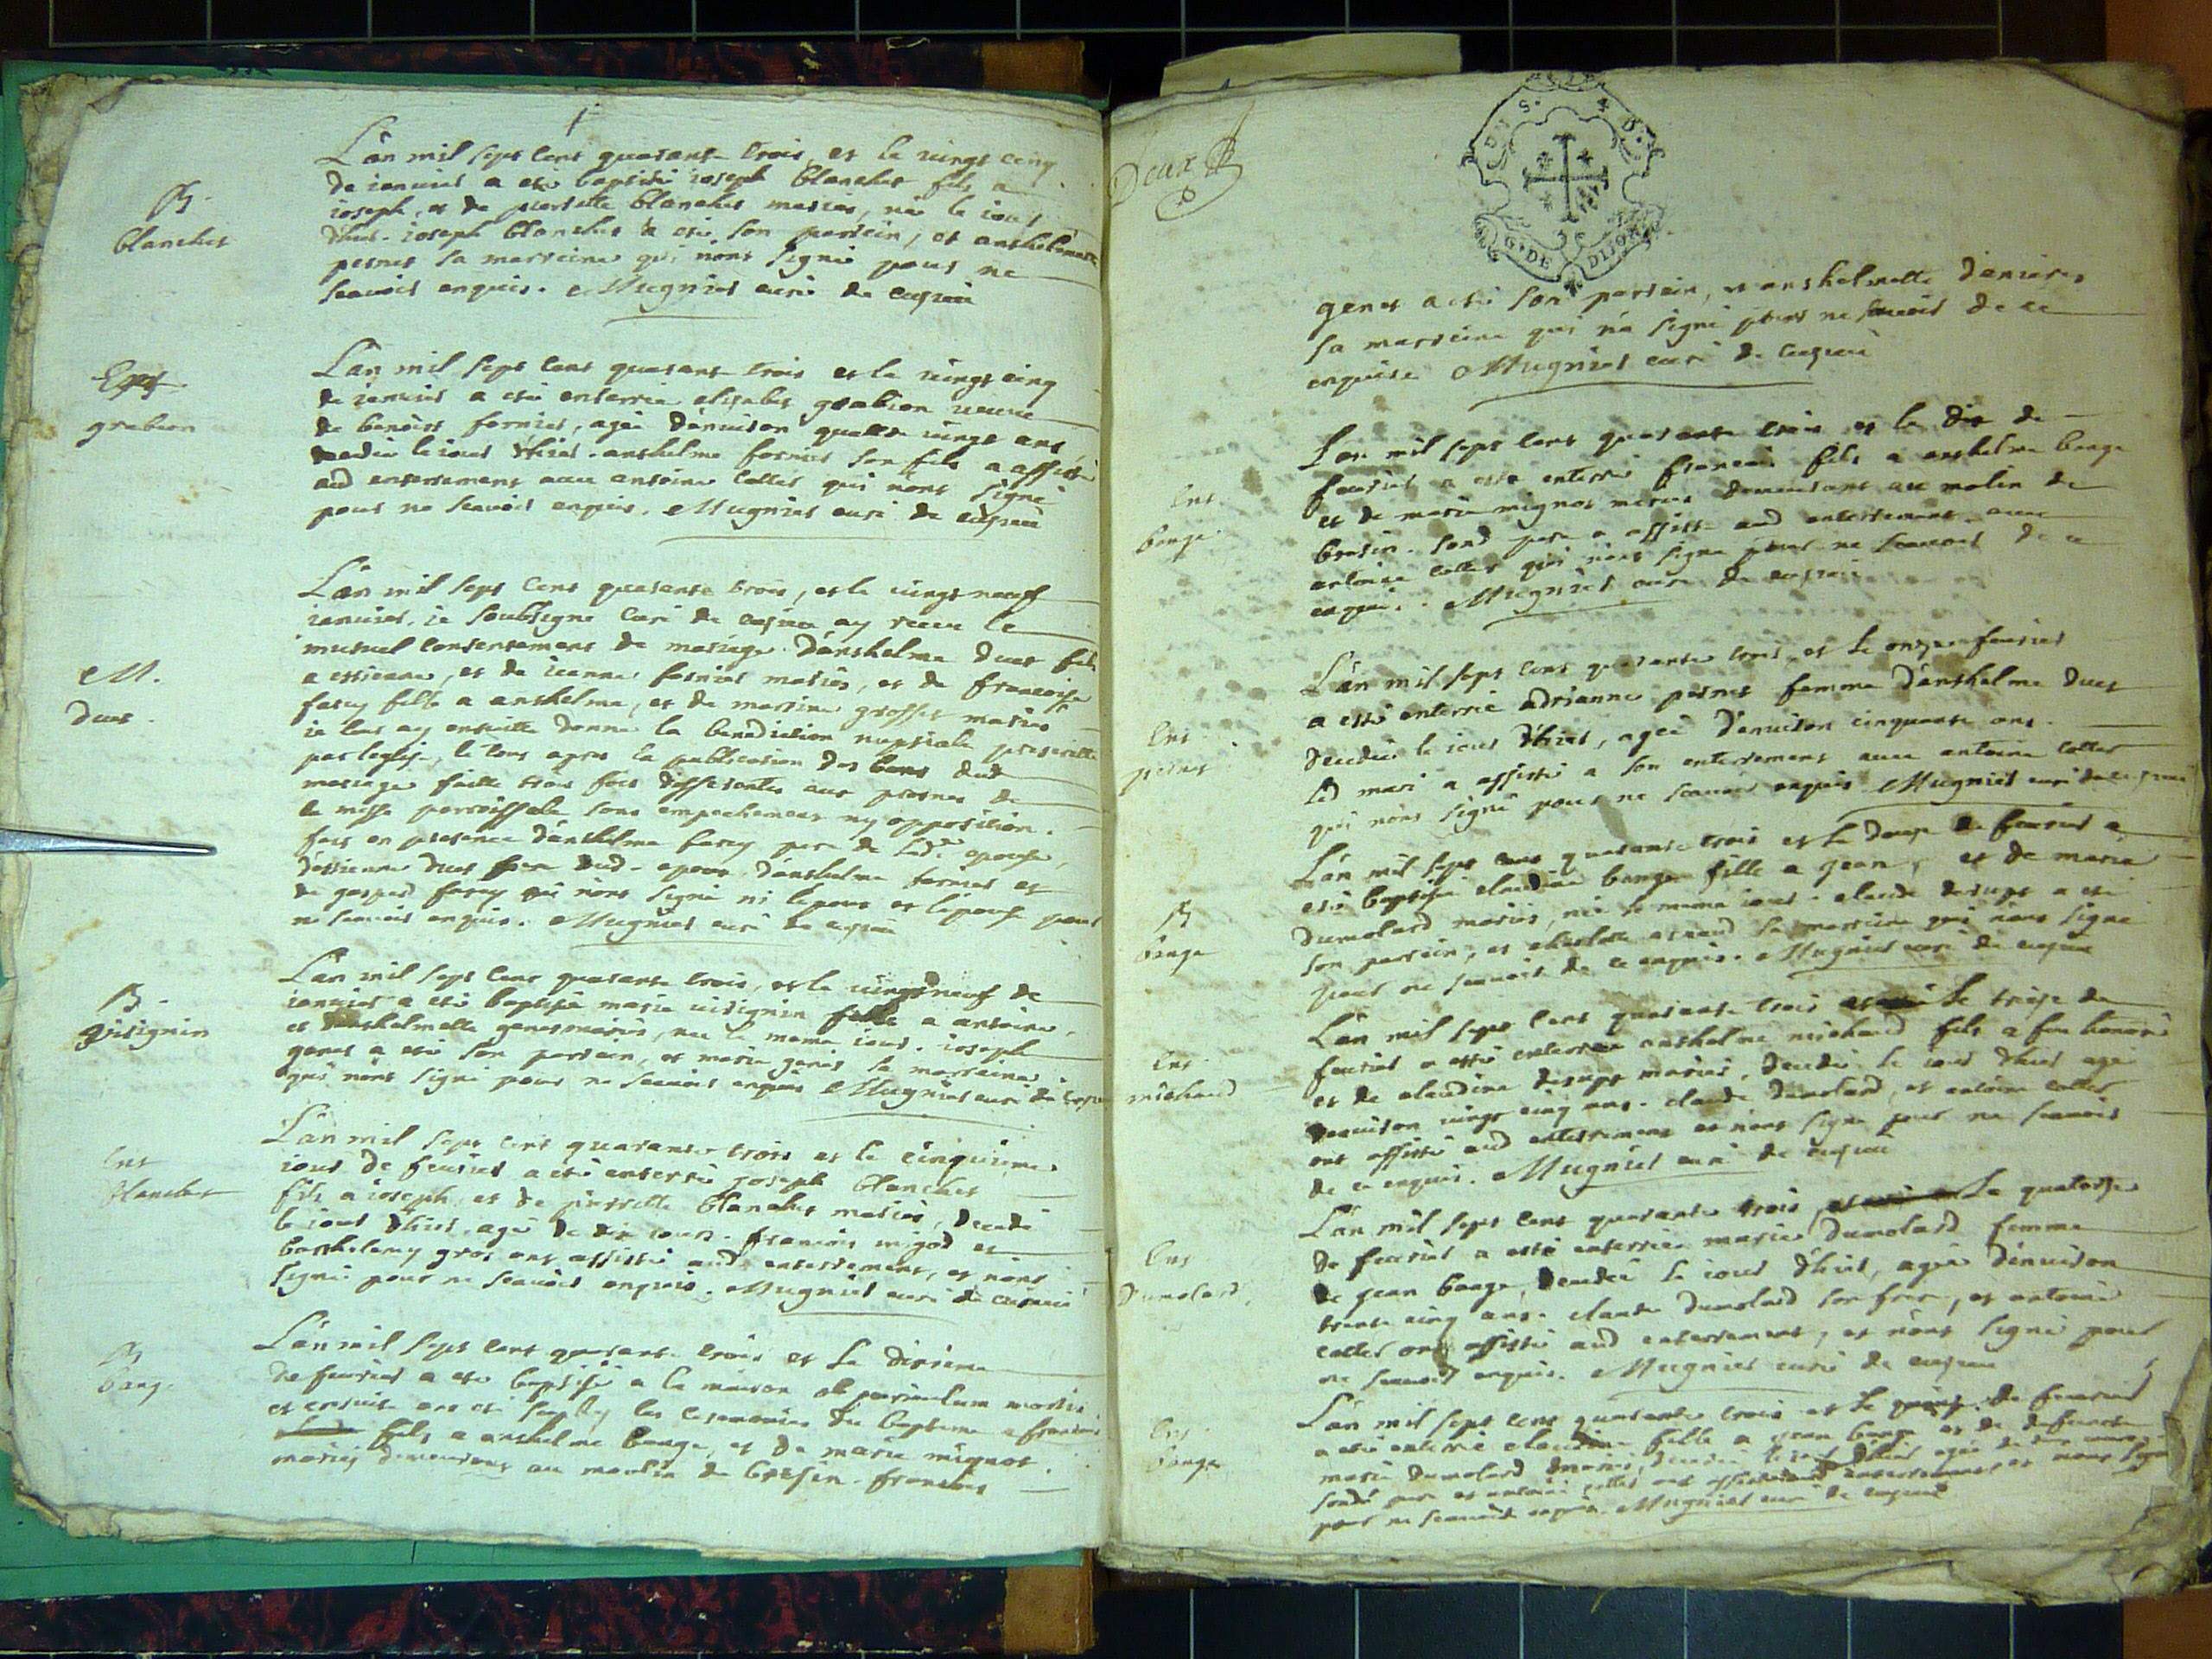 L'an mil sept cent quarante trois, et le vingt cinq
de ianvier a esté baptisé ioseph blanchet fils a
ioseph, et de pierrette blanchet mariés, né le iour
d'hier. ioseph blanchet a esté son parrein, et anthelmette
pernet sa marreine qui n'ont signé pour ne
scavoir enquis. Mugnier curé de
B.
blanchet
L'an mil sept cent quarante trois et le vingt cinq
de ianvier a esté enterrée elizabet grabion veuve
de benoist fornier, agée d'environ quattre vingt ans
le iour d'hier. anthelme fornier son fils a assisté
aud enterrement avec antoine collet qui n'ont signé
pour ne scavoir enquis. Mugnier curé de
grabion
L'an mil sept cent quarante trois, et le vingt neuf
ianvier. ie soubsigné curé de ay receu le
mutuel consentement de mariage d'anthelme duet fils
a estienne, et de ieanne fornier mariés, et de francoise
fille a anthelme, et de marrine grosset mariés
ie leur ay ensuitte donné la benediction nuptiale prescritte
par leglise, le tout apres la publication des bans dud
mariage faitte trois fois differentes aux prosnes de
la messe parroissiale sans empechement ny opposition.
fait en presence d'anthelme pere de lad. epouse,
d'estienne duet dud. epoux, d'anthelme fornier et
de gaspard qui n'ont signé ni lepoux et lepouse pour
ne scavoir enquis. Mugnier curé de
M.
duet.
L'an mil sept cent quarante trois, et le vingt neuf de
ianvier a esté baptisée marie visignin fille a antoine,
et d'anthelmette genet mariés, née le meme iour. ioseph
genet a esté son parrein, et marie genet sa marreine
qui n'ont signé pour ne scavoir enquis Mugnier curé de
B.
visignin
L'an mil sept cent quarante trois et le cinquieme
iour de fevrier a esté enterré joseph blanchet
fils a ioseph et de pierrette blanchet mariés, decedé
le iour d'hier, agé de dix iours. francois migod et
barthelemy gros ont assisté aud enterrement, et n'ont
signé pour ne scavoir enquis. Mugnier curé de
Ent
blanchet
L'an mil sept cent quarante trois et le dixieme
de fevrier a esté baptisé a la maison ob periculum mortis
et ensuite ont esté les ceremonies du bapteme a francois
fils a anthelme bange, et de marie mignot.
mariés demeurant au moulin de bresin. francois
B
bange
Deux
G. DE DIJON
genet a esté son parrein, et anthelmette
sa marreine qui n'a signé pour ne scavoir de ce
enquise Mugnier curé de
L'an mil sept cent quarante trois et le dix de
fevrier a esté enterré francois fils a anthelme bange
et de marie mignot mariés demeurant au molin de
bresin. pere a assisté aud enterrement avec
antoine collet qui n'ont signé pour ne scavoir de ce
enquis. Mugnier curé de
Ent.
bange.
L'an mil sept cent quarante trois, et le onze fevrier
a esté enterrée adrianne pernet femme d'anthelme duet
decedée le iour d'hier, agée d'environ cinquante ans.
Led mari a assisté a son enterrement avec antoine collet
qui n'ont signé pour ne scavoir enquis Mugnier curé de
Ent
pernet
L'an mil sept cent quarante trois et le douze de fevrier a
esté baptisée claudine bange fille a jean, et de marie
dumolard mariés, née le meme iour. claude a esté
son parrein, et sa marreine qui n'ont signé
pour ne scavoir de ce enquis. Mugnier curé de
B
bange
L'an mil sept cent quarante trois le treize de
fevrier a esté enterré anthelme michaud fils a feu
et de claudine mariés, decedé le iour d'hier agé
d'environ vingt cinq ans. claude dumolard, et antoine collet
ont assisté aud enterrement et n'ont signé pour ne scavoir
de ce enquis. Mugnier curé de
Ent
michaud
L'an mil sept cent quarante trois, le quatorze
de fevrier a esté enterrée marie dumolard femme
de jean bange, decedée le iour d'hier, agée d'environ
trente cinq ans. claude dumolard son frere, et antoine
collet ont assisté aud enterrement, et n'ont signé pour
ne scavoir enquis. Mugnier curé de
Ent
dumolard.
L'an mil sept cent quarante trois et le de fevrier
a esté enterrée claudine fille a jean bange et de defunte
marie dumolard mariés, decedée le iour d'hier agée de
pere et antoine collet ont assisté aud enterrement et n'ont signé
pour ne scavoir enquis. Mugnier curé de
Ent.
bange